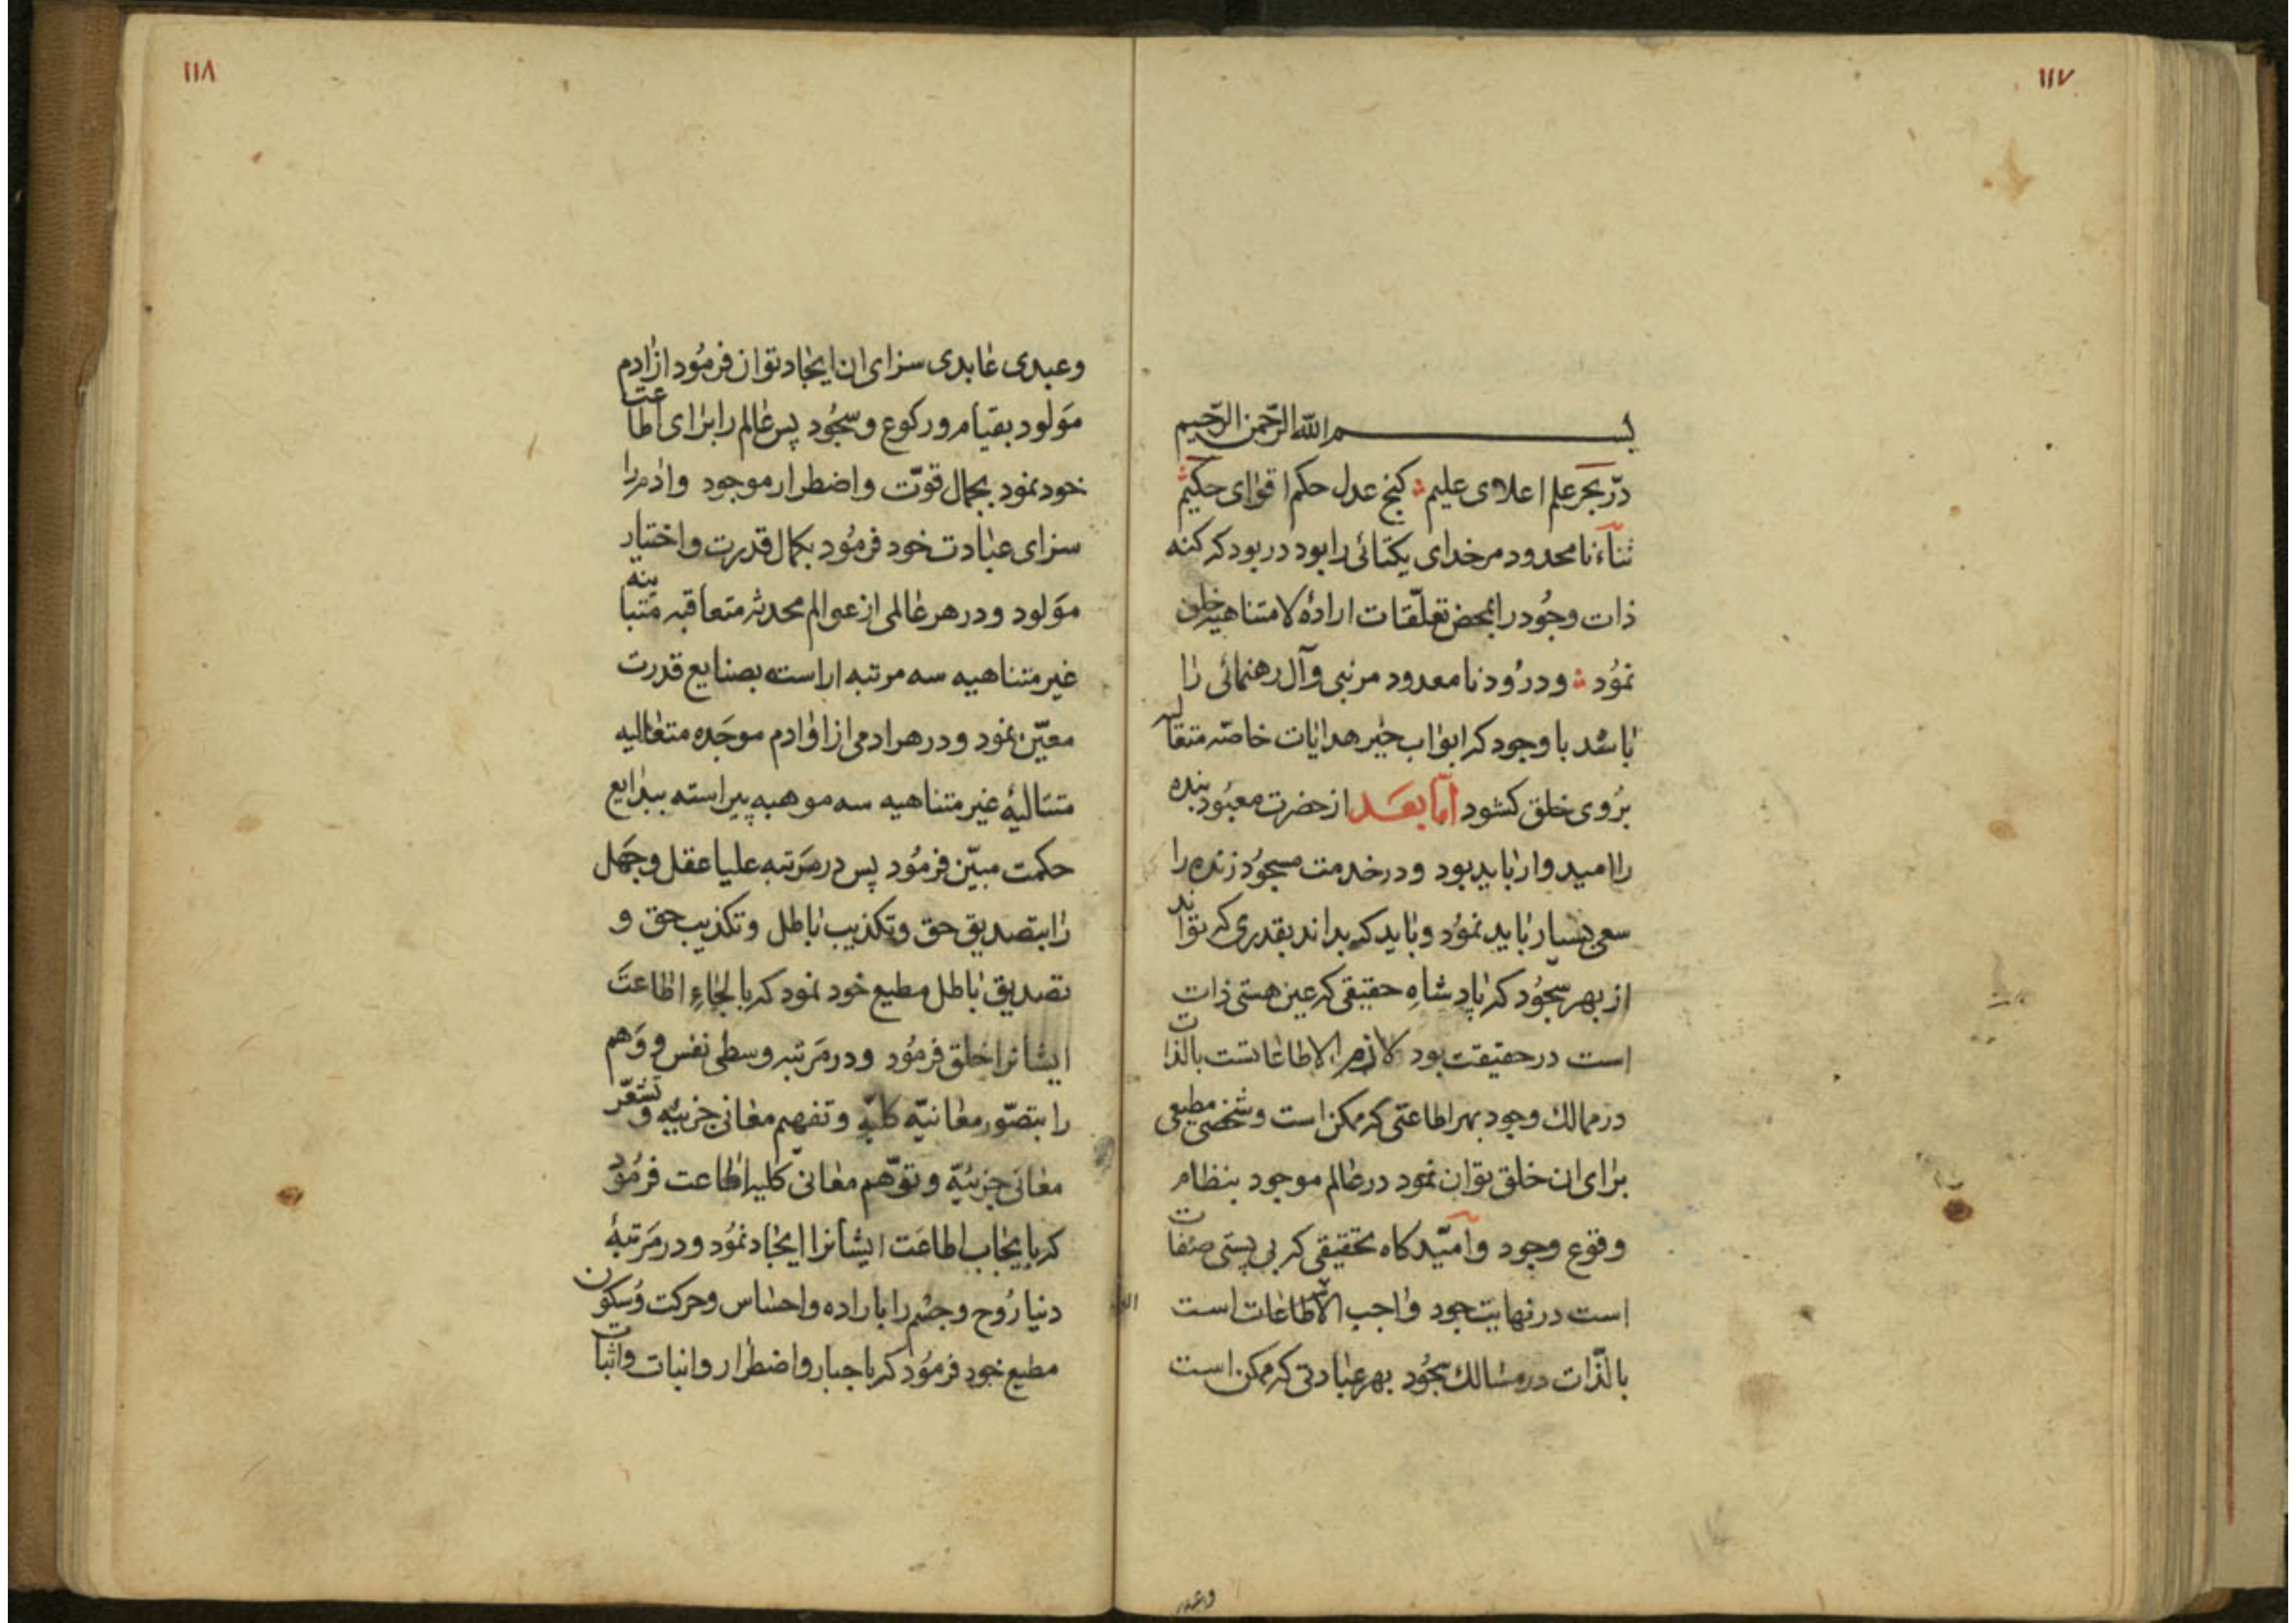 ۱۱۷
بسم الله الرحمن الرحیم
درّ بحر علم اعلای علیم کنج عدل حکم اقوای حکیم
ثنآء نامحدود مر خدای یکتائی را بود در بود که کنه
ذات وجُود را بمحض تعلّقات ارادهٔ لامتناهیه خلق
نمُود و درُود نامعدود مر نبی وآل رهنمائی را
باشد با وجود که ابواب خیر هدایات خاصّه متعاله
برُوی خلق کشود امّا بعد از حضرت معبُود بنده
را امیدوار باید بود و در خدمت مسجُود زنده را
سعی بسیار باید نمُود و باید که بداند بقدری که تواند
از بهر سجُود که پادشاهِ حقیقی که عین هستی ذات
است در حقیقت بود لازم الاطاعاتست بالذات
در ممالک وجود بهر اطاعتی که ممکن است و شخصی مطیعی
برای ان خلق توان نمود در عالم موجود بنظام
وقوع وجود وآمیّدکاه تحقیقی که بی پستی صفات
است در نهایت جود واجب الاطاعات است
بالذّات در مسالک سجُود بهر عبادتی که ممکن است
واعبد
۱۱۸
وعبدی عابدی سزای ان ایجاد توان فرمُود از ادم
مَولود بقیام و رکوع و سجُود پس عالم را برای اطاعت
خود نمود بجمال قوّت واضطرار موجود وادم را
سزای عبادت خود فرمُود بکمال قدرت واختیار
مَولود و در هر عالمی از عوالم محدثه متعاقبه متباینه
غیر متناهیه سه مرتبه اراسته بصنایع قدرت
معیّن نمود و در هر ادمی از اوادم موجَده متعالیه
متسالیهٔ غیر متناهیه سه موهبه پیراسته ببدایع
حکمت مبیّن فرمُود پس در مَرتبه علیا عقل وجَهل
را بتصدیق حق وتکذیب باطل وتکذیب حق و
تصدیق باطل مطیع خود نمود که بالجاءِ اطاعتَ
ایشانرا خلق فرمُود و در مَرتبه وسطی نفس ووَهم
را بتصّور معانیّه کلیّه وتفهیم معانی جزئیّه و تشعّر
معانی جزئیّه وتوّهم معانیّ کلیه اطاعت فرمُود
که بایجاب اطاعَت ایشانرا ایجاد نمُود و در مَرتبهٔ
دنیا رُوح وجسْم را باراده واحساس وحرکت وُسکون
مطیع خود فرمُود که باجبار واضطرار وانبات واثبات